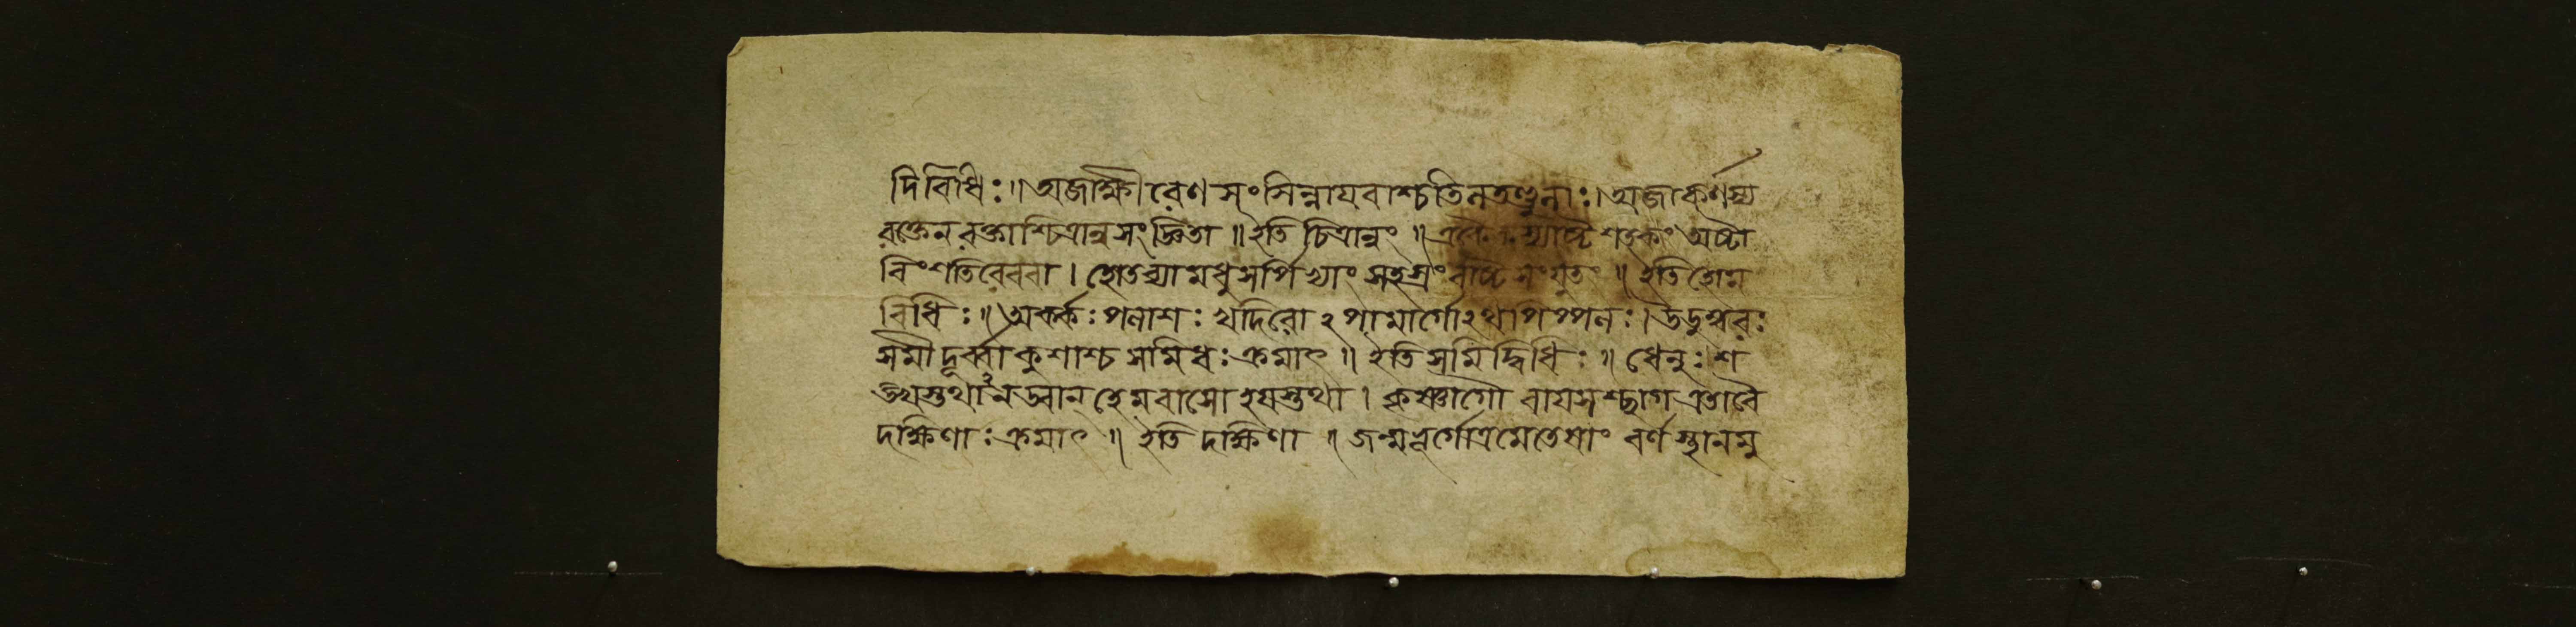 দিবিধিঃ॥অজাক্ষীরেণ সংসিন্নাযবাশ্চতিলতণ্ডুলাঃ।অজাকর্ণস্য
রক্তেন রক্তাশ্চিত্রান্ন সংজ্ঞিতা॥ইতি চিত্রান্নং॥ অষ্টা
বিংশতিরেববা।হোতব্যা মধুসর্পিভ্যাং ॥ইতিহোম
বিধিঃ॥অর্ক্কঃপলাশঃখদিরোঽপামার্গোঽথাপিপ্পলঃ।উডুম্বরঃ
সমীদূর্ব্বাকুশাশ্চ সমিধঃক্রমাৎ॥ইতিসমিদ্বিধিঃ॥ধেনুঃশ
ঙ্খস্তথাঽনড্বান্ হেমবাসোহযস্তথা।কৃষ্ণাগৌ বাযসশ্ছাগএতাবৈ
দক্ষিণাঃক্রমাৎ॥ইতিদক্ষিণা॥জন্মভূর্গোত্রমেতেসাং বর্ণস্থানমু